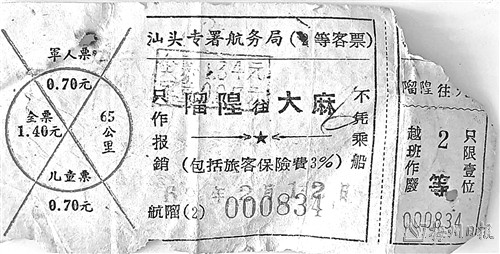 軍人票
0.70元
全票
1.40元
65
公里
儿童票
0.70元
汕头专署航务局(等客票)
只作报銷
䧞隍往大麻
不凭乘船
(包括旅客保險費3%)
6 年2月12日
航䧞(2) 000834
䧞隍往大
越班作廢
2
等
只限壹位
000834